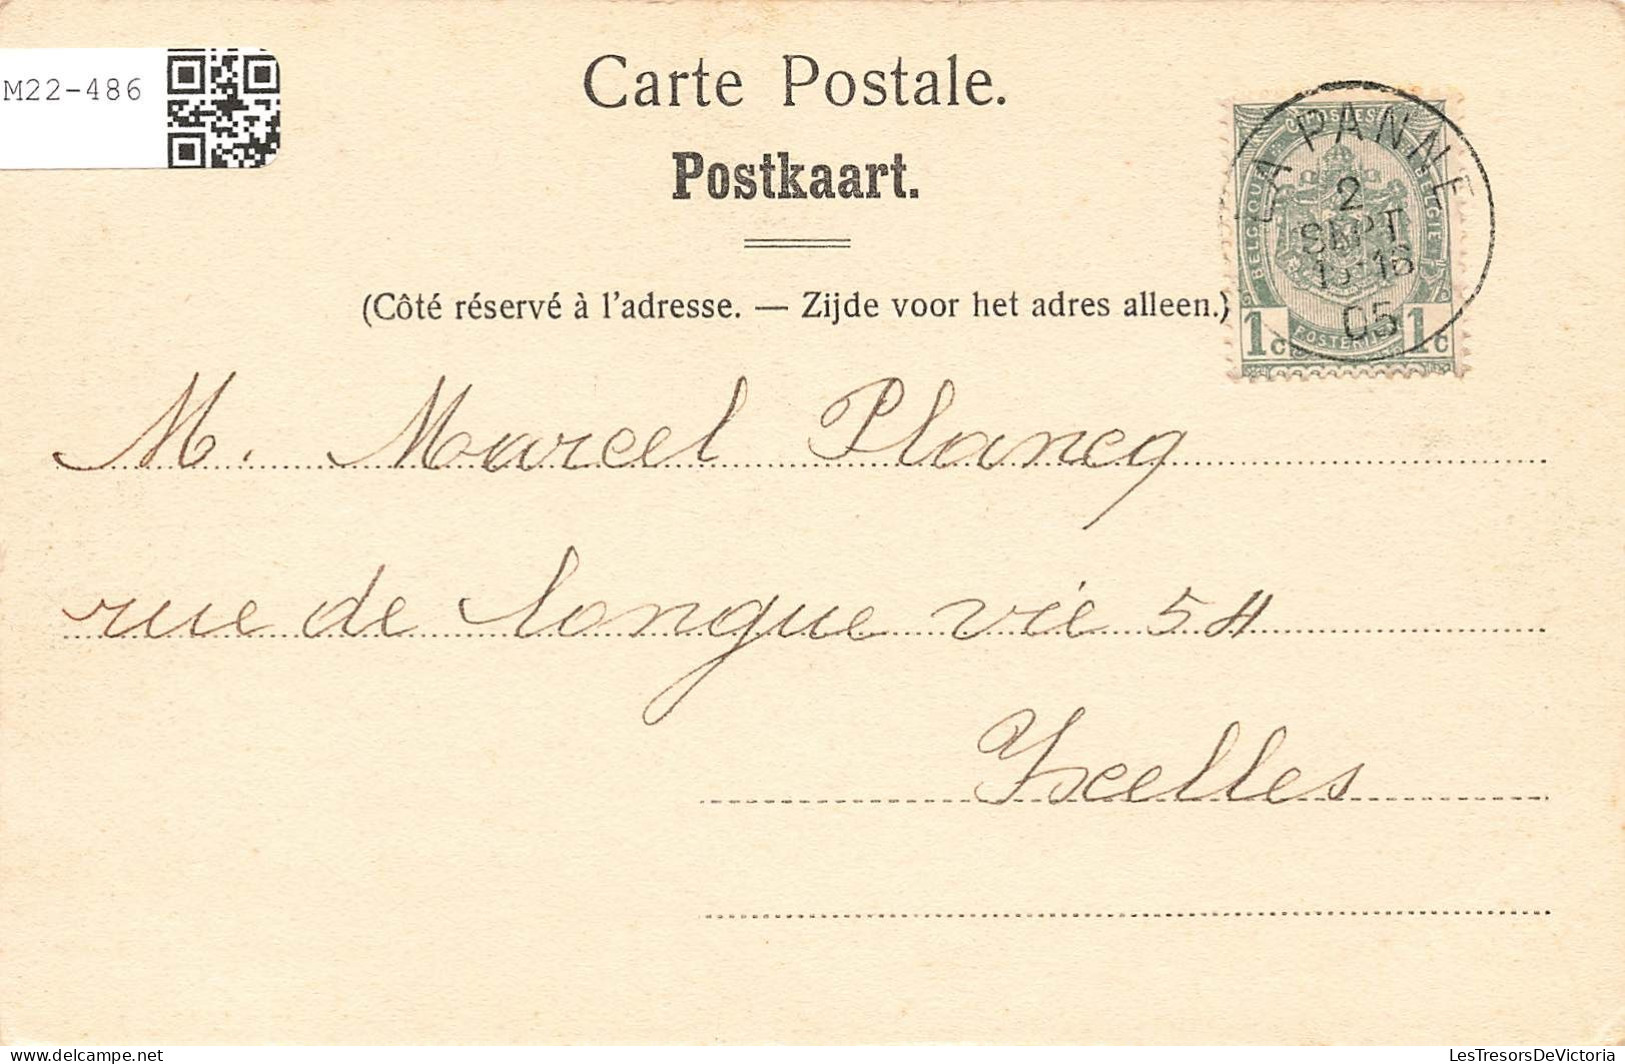 M22-486
Carte Postale.
Postkaart.
(Côté réservé à l'adresse. — Zijde voor het adres alleen.)
LA PANNE
2
SEPT
15-16
05
BELGIQUE BELGIE
1c 1c
M. Marcel Plancq
rue de longue vie 54
Ixelles
LesTresorsDeVictoria